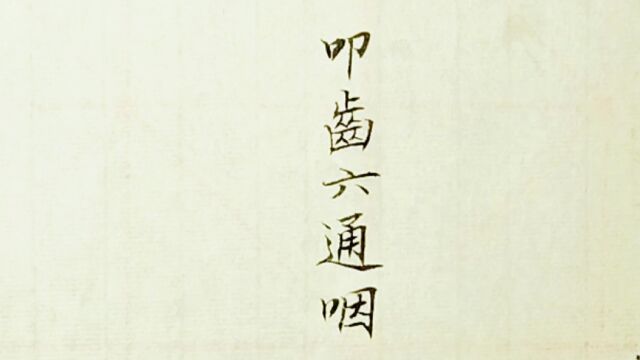 叩齒六通咽